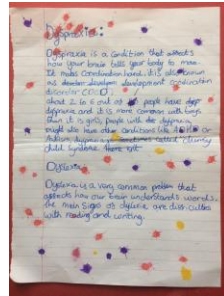 Dyspraxia:
Dyspraxia is a condition that affects
how your brain tells your body to move.
It makes coordination hard. it is also known
as develop development coordination
disorder (DCD).
about 2 in 6 out of people have dysp
dyspraxia and it is more common with boys
than it is girls. people with
might also have other conditions like ADHD or
Autism. dyspraxia sometimes called clumsy
child syndrome.
Dyslexia
Dyslexia is a very common problem that
affects how our brain understands words.
the main signs of dyslexia are
with reading and writing.